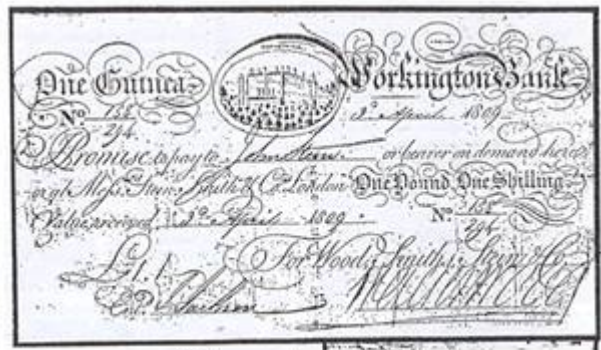 One Guinea Workington Bank
No 155 2d April 1809
294
I Promise to pay to John Stein or bearer on demand here
or at Messrs Stein, Smith & Co. London One Pound One Shilling
Value received 2d April 1809 No 155
294
For Wood, Smith, Stein & Co
£1.1
Entd